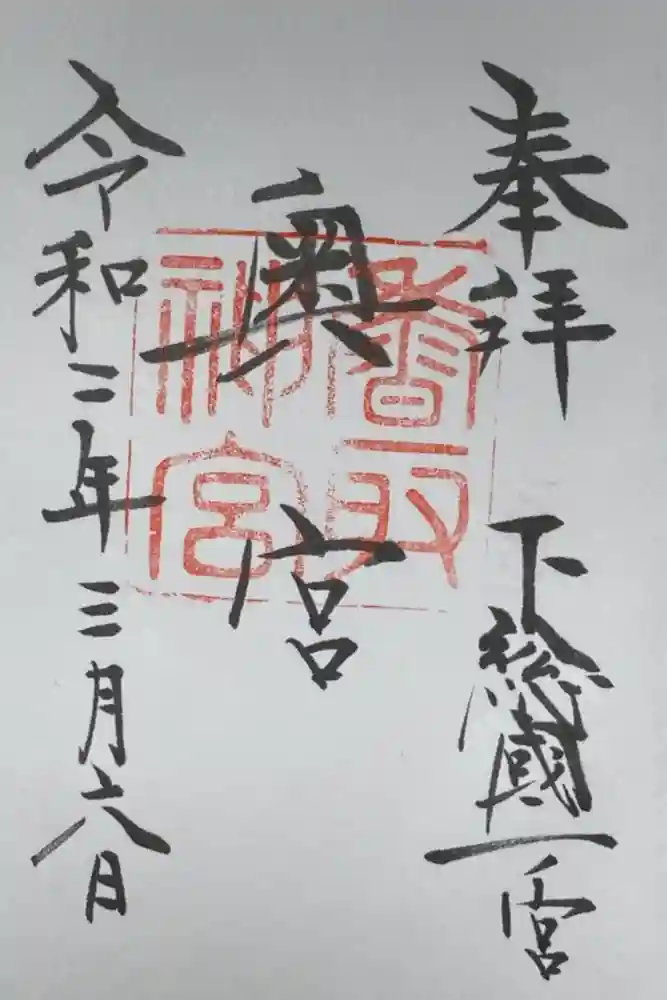 奉拝 下総國一宮
奥宮
香取神宮
令和二年三月六日